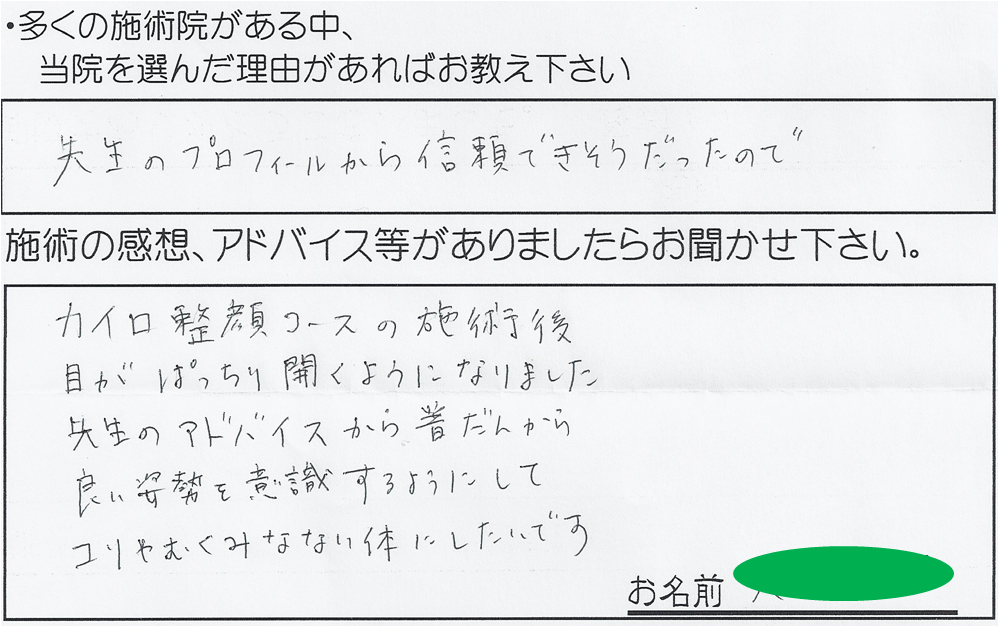 ・多くの施術院がある中、
当院を選んだ理由があればお教え下さい
先生のプロフィールから信頼できそうだったので
施術の感想、アドバイス等がありましたらお聞かせ下さい。
カイロ整顔コースの施術後
目がぱっちり開くようになりました
先生のアドバイスから普だんから
良い姿勢を意識するようにして
コリやむくみなない体にしたいです
お名前